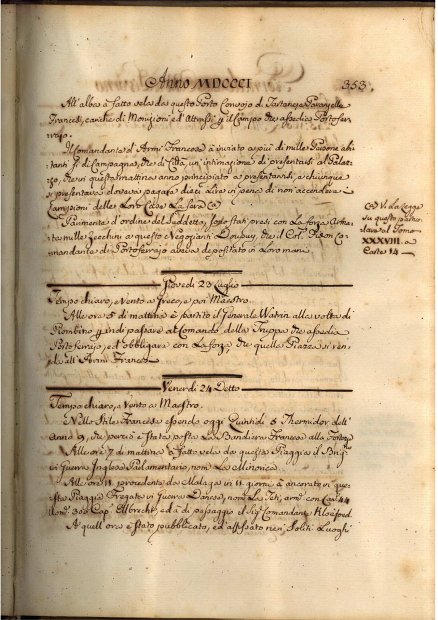 Anno MDCCCI
353
All'alba à fatto vela da questo Porto Convojo di Tartane, e Paranzelle
Francesi, cariche di Monizioni ed Attrassi p il Campo che assedia Portofer-
rajo.
Il Comandante d'Armi Francese à inviato a più di mille Persone abi-
tanti p di Campagna, che di Città, un'intimazione di presentarsi al Palaz-
zo, che in questa mattina anno principiato a presentarsi, e chiunque
si presentava doveva pagare dieci Lire in pena di non accendere i
Lampioni delle Loro Case La sera
Parimente d'ordine del Suddetto, sono stati presi con La forza Arma-
ta mille Zecchini a questo Negoziante Dupuy, che il Col. Fixon Co-
mandante di Portoferrajo aveva depositato in Loro mani
V. La Legge
su questo parti-
colare al Tomo
XXXVIII. a
Carte 14
Giovedì 23 Luglio
Tempo chiaro, e vento a Greco, e poi Maestro.
Alle ore 5 di mattina è partito il Generale Watrin alla volta di
Piombino p indi passare al Comando della Truppa che assedia
Portoferrajo, ed obbligare con La forza, che quella Piazza si ren-
da all'Armi Francesi
Venerdì 24 Detto
Tempo chiaro, e Vento a Maestro.
Nello Stile Francese essendo oggi Quintidi 5 Thermidor dell'
Anno 9, che perciò è stata posta La Bandiera Francese alla Fortezza
Alle ore 7 di mattina à fatto vela da questa Piaggia il Brig
di Guerra Inglese Parlamentario, nom. La Minorca.
Alle ore 11, procedente da Malaga in 11 giorni à ancorato in que-
sta Piaggia Fregata di Guerra Danese, nom. La Teti, arm. con Can. 44
Uom. 303 Cap. Albrecht, ed à di passaggio il Sig.
A quell'ora è stato pubblicato, ed affissato nei soliti Luoghi